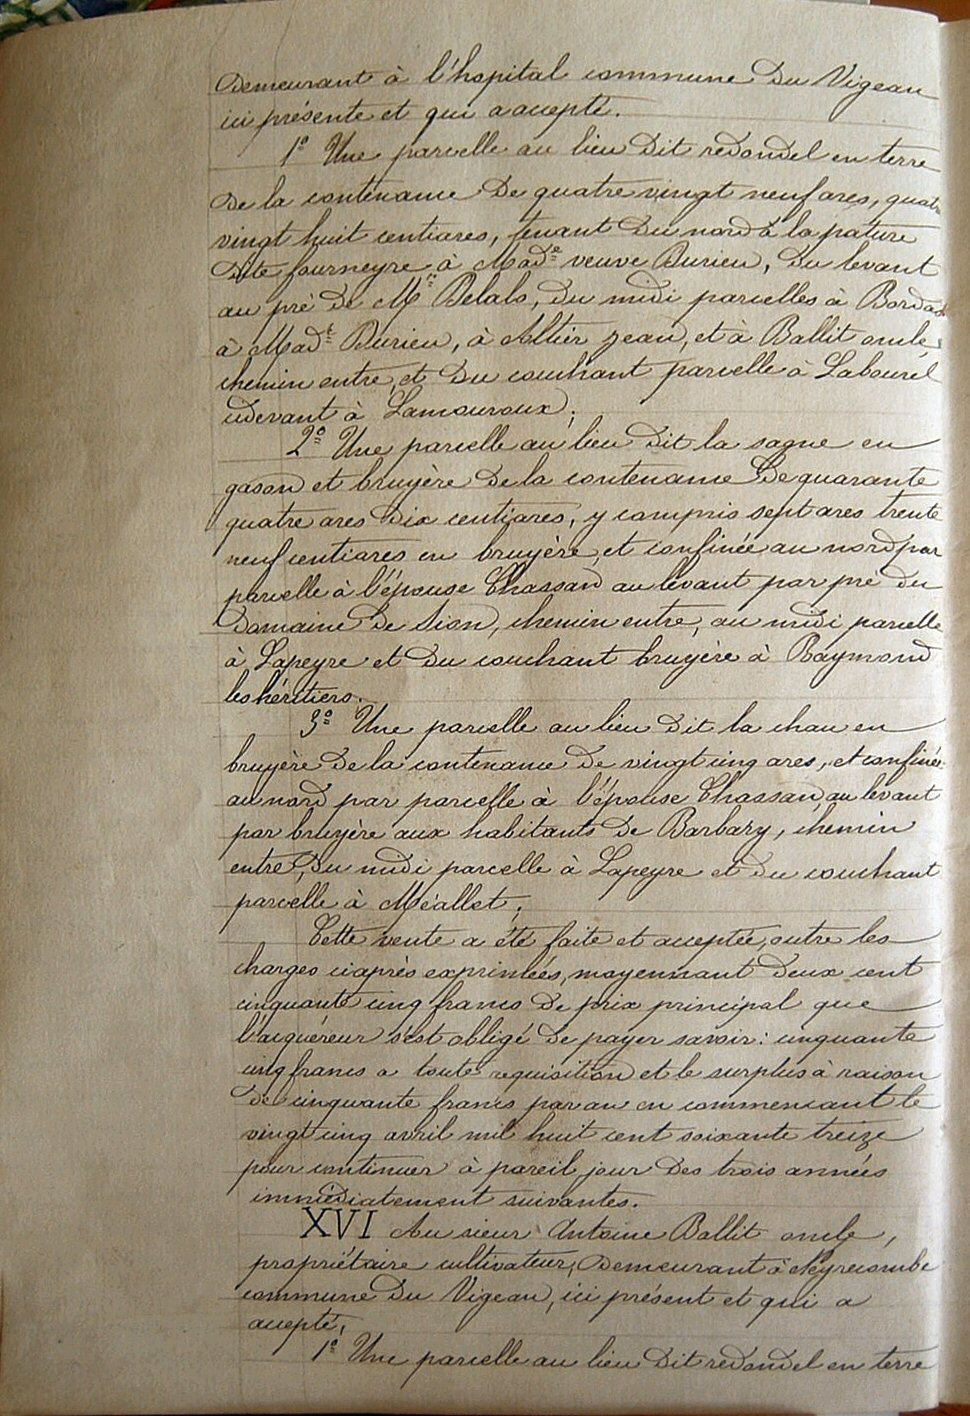 Demeurant à l'hopital commune Du Vigean
ici présente et qui a accepté.
1° Une parcelle au lieu Dit redondel en terre
De la contenance De quatre vingt neuf ares, quatre
vingt huit centiares, tenant Du nord à la pature
Dite fourneyre à Made veuve Durieu, Du levant
au pré De Mr Delalo, Du midi parcelles à Bordas
à Made Durieu, à Altier Jean, et à Ballit oncle,
chemin entre, et Du couchant parcelle à Labouré
cidevant à Lamouroux;
2° Une parcelle au lieu Dit la sagne en
gason et bruyère De la contenance De quarante
quatre ares Dix centiares, y compris sept ares trente
neuf centiares en bruyère, et confinée au nord par
parcelle à l'épouse Chassan au levant par pré du
Domaine De Sion, chemin entre, au midi parcelle
à Lapeyre et Du couchant bruyère à Raymond
les héritiers.
3° Une parcelle au lieu Dit la chau en
bruyère De la contenance De vingt cinq ares, et confinée
au nord par parcelle à l'épouse Chassan, au levant
par bruyère aux habitants De Barbary, chemin
entre, Du midi parcelle à Lapeyre et Du couchant
parcelle à Méallet;
Cette vente a été faite et acceptée, outre les
charges ciaprès exprimées, moyennant Deux cent
cinquante cinq francs De prix principal que
l'acquéreur s'est obligé De payer savoir: cinquante
cinq francs a toute requisition et le surplus à raison
De cinquante francs par an en commencant le
vingt cinq avril mil huit cent soixante treize
pour continuer à pareil jour Des trois années
immédiatement suivantes.
XVI Au sieur Antoine Ballit oncle,
propriétaire cultivateur, Demeurant à Neyrecombe
commune Du Vigean, ici présent et qui a
accepté,
1° Une parcelle au lieu Dit redondel en terre